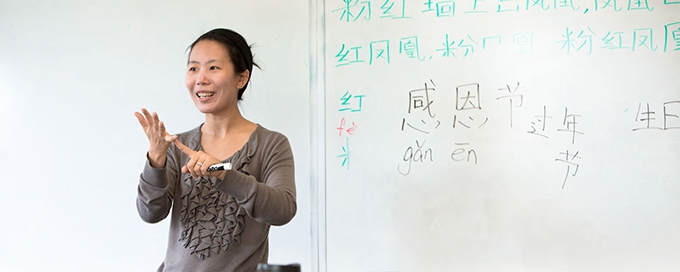 粉红墙上画凤凰,凤凰
红凤凰,粉凤凰,粉红凤
红 感恩节 过年 生日
gǎn ēn 节